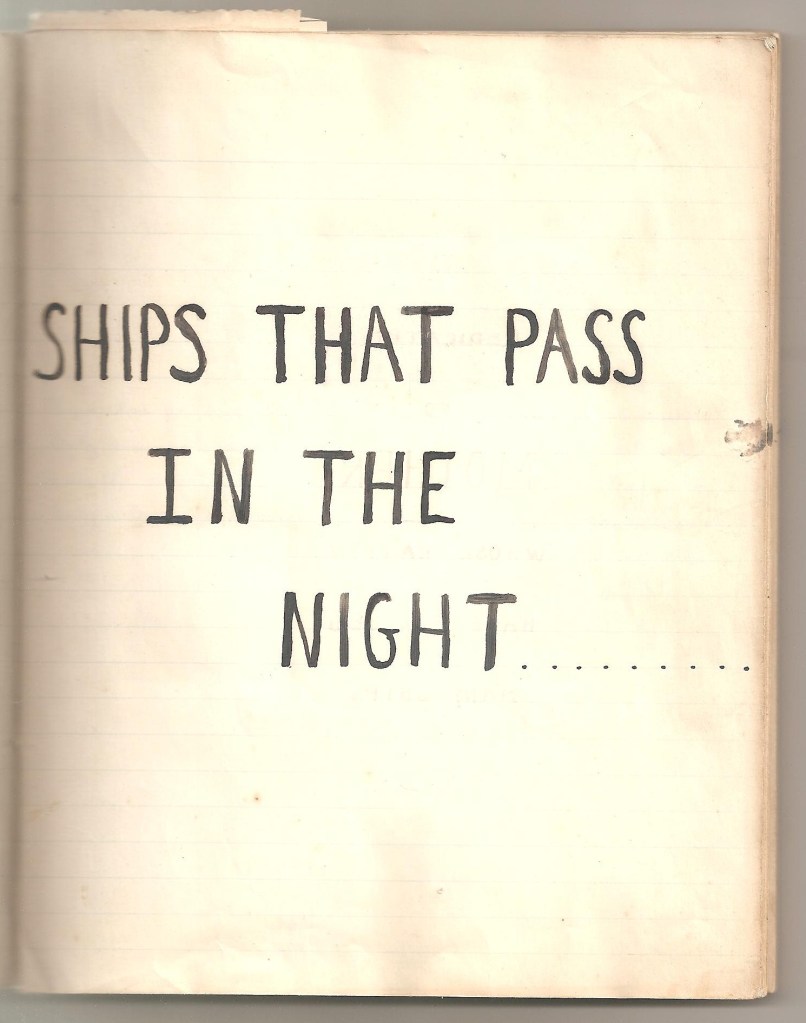 SHIPS THAT PASS
IN THE
NIGHT..........